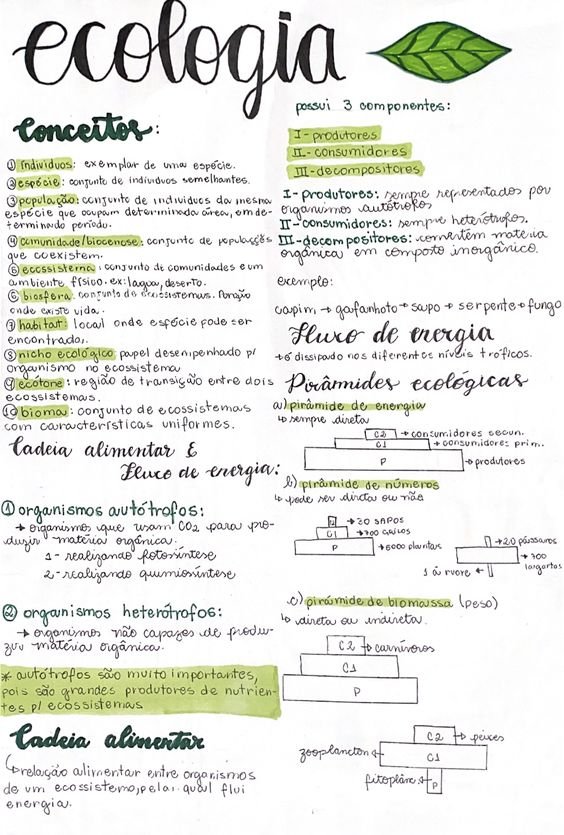 ecologia
Conceitos:
① indivíduos: exemplar de uma espécie.
② espécie: conjunto de indivíduos semelhantes.
③ população: conjunto de indivíduos da mesma
espécie que ocupam determinada área, em de-
terminado período.
④ comunidade/biocenose: conjunto de populações
que coexistem.
⑤ ecossistema: conjunto de comunidades e um
ambiente físico. ex: lagoa, deserto.
⑥ biosfera: conjunto de ecossistemas. Porção
onde existe vida.
⑦ habitat: local onde espécie pode ser
encontrado.
⑧ nicho ecológico papel desempenhado p/
organismo no ecossistema
⑨ ecótone: região de transição entre dois
ecossistemas.
⑩ bioma: conjunto de ecossistemas
com características uniformes.
Cadeia alimentar E
Fluxo de energia:
① organismos autótrofos:
→ organismos que usam CO2 para pro-
duzir matéria orgânica.
1- realizando fotossíntese
2- realizando quimiossíntese
② organismos heterótrofos:
→ organismos não capazes de produ-
zir matéria orgânica.
* autótrofos são muito importantes,
pois são grandes produtores de nutrien-
tes p/ ecossistemas
Cadeia alimentar
↳ relação alimentar entre organismos
de um ecossistema, pela qual flui
energia.
possui 3 componentes:
I - produtores
II - consumidores
III - decompositores
I - produtores: sempre representados por
organismos autótrofos
II - consumidores: sempre heterótrofos.
III - decompositores: convertem matéria
orgânica em composto inorgânico.
exemplo:
capim → gafanhoto → sapo → serpente → fungo
Fluxo de energia
→ é dissipado nos diferentes níveis tróficos.
Pirâmides ecológicas
a) pirâmide de energia
↳ sempre direta
C2 → consumidores secun.
C1 → consumidores prim.
P → produtores
b) pirâmide de números
↳ pode ser direta ou não
C2 → 30 sapos
C1 → 700
P → 6000 plantas
→ 20 pássaros
→ 700
lagartas
1 árvore
c) pirâmide de biomassa (peso)
↳ direta ou indireta.
C2 → carnívoros
C1
P
C2 → peixes
zooplancton ← C1
fitoplânc. ← P